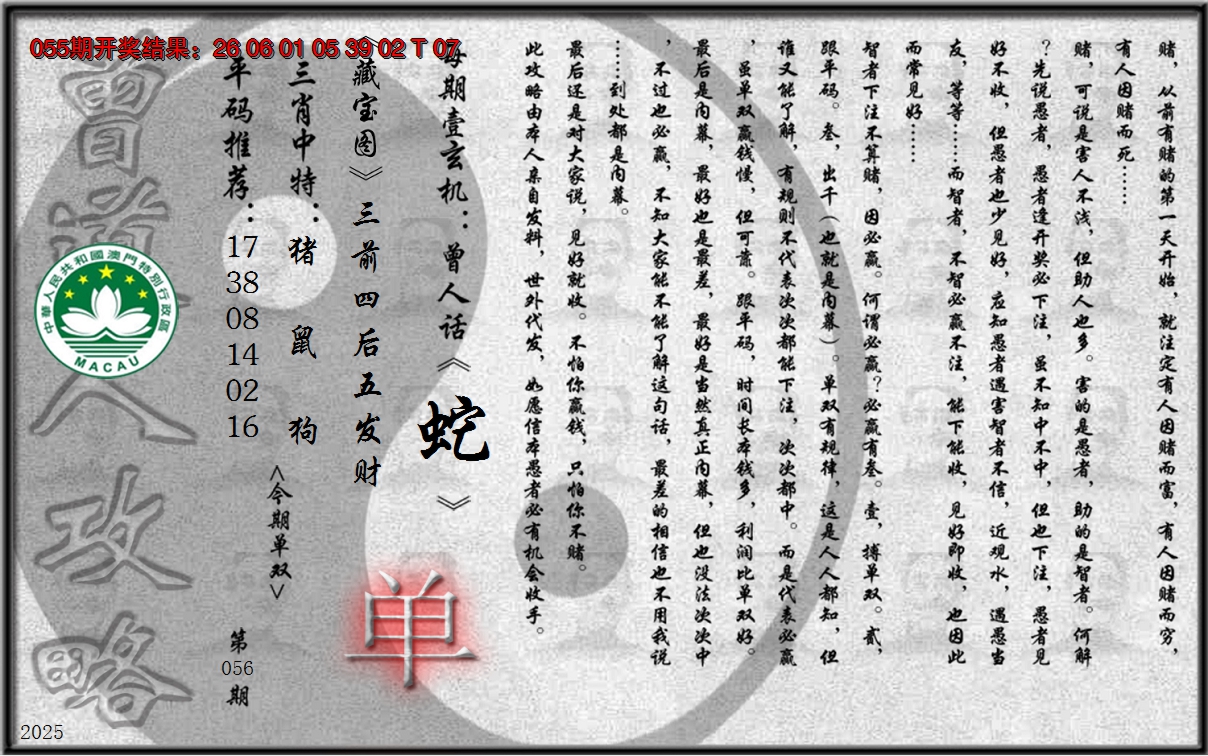 055期开奖结果：26 06 01 05 39 02 T 07
赌，从前有赌的第一天开始，就注定有人因赌而富，有人因赌而穷，
有人因赌而死……
赌，可说是害人不浅，但助人也多。害的是愚者，助的是智者。何解
？先说愚者，愚者逢开奖必下注，虽不知中不中，但也下注，愚者见
好不收，但愚者也少见好，应知愚者遇害智者不信，近观水，遇愚当
友，等等……而智者，不智必赢不注，能下能收，见好即收，也因此
而常见好……
智者下注不算赌，因必赢。何谓必赢？必赢有叁。壹，搏单双。贰，
跟平码。叁，出千（也就是内幕）。单双有规律，这是人人都知，但
谁又能了解，有规则不代表次次都能下注，次次都中。而是代表必赢
，虽单双赢钱慢，但可靠。跟平码，时间长本钱多，利润比单双好。
最后是内幕，最好也是最差，最好是当然真正内幕，但也没法次次中
，不过也必赢，不知大家能不能了解这句话，最差的相信也不用我说
……到处都是内幕。
最后还是对大家说，见好就收。不怕你赢钱，只怕你不赌。
此攻略由本人亲自发料，世外代发，如愿信本愚者必有机会收手。
每期壹玄机：曾人话《蛇》
《藏宝图》三前四后五发财
单
三肖中特：猪 鼠 狗
<今期单双>
平码推荐：
17
38
08
14
02
16
第
056
期
曾道人攻略
中華人民共和國澳門特別行政區
MACAU
2025